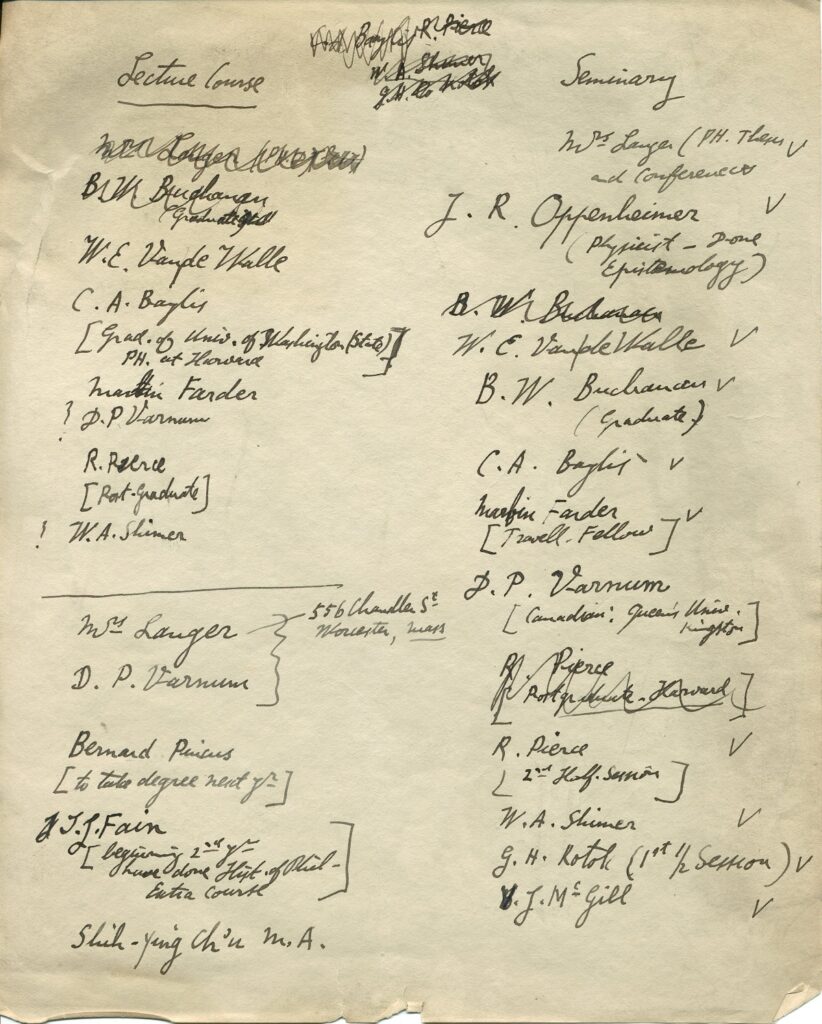 R. Pierce
W. A. Shimer
G. H. Rotok
Lecture Course
Mrs Langer
B. W. Buchanan
(Graduate
W. E. Van de Walle
C. A. Baylis
[Grad. of Univ. of Washington (State)]
PH. at Harvard
Martin Farder
? D. P. Varnum
R. Pierce
[Post-Graduate]
! W. A. Shimer
Mrs Langer
D. P. Varnum
556 Chandler St
Worcester, Mass
Bernard Pincus
[to take degree next yr]
T. J. Fain
[beginning 2nd yr
have done Hist. of Phil-
Extra Course]
Shih-Ying Ch'u M. A.
Seminary
Mrs Langer (PH. Thesis ✓
and Conferences
J. R. Oppenheimer ✓
(Physicist – Done
Epistemology)
B. W. Buchanan
W. E. Van de Walle ✓
B. W. Buchanan ✓
(Graduate)
C. A. Baylis ✓
Martin Farder ✓
[Travell. Fellow]
D. P. Varnum
[Canadian: Queen's Univ.
Kingston]
R. Pierce
[Postgraduate - Harvard]
R. Pierce ✓
[2nd Half-Session]
W. A. Shimer ✓
G. H. Rotok (1st 1/2 Session) ✓
V. J. McGill ✓